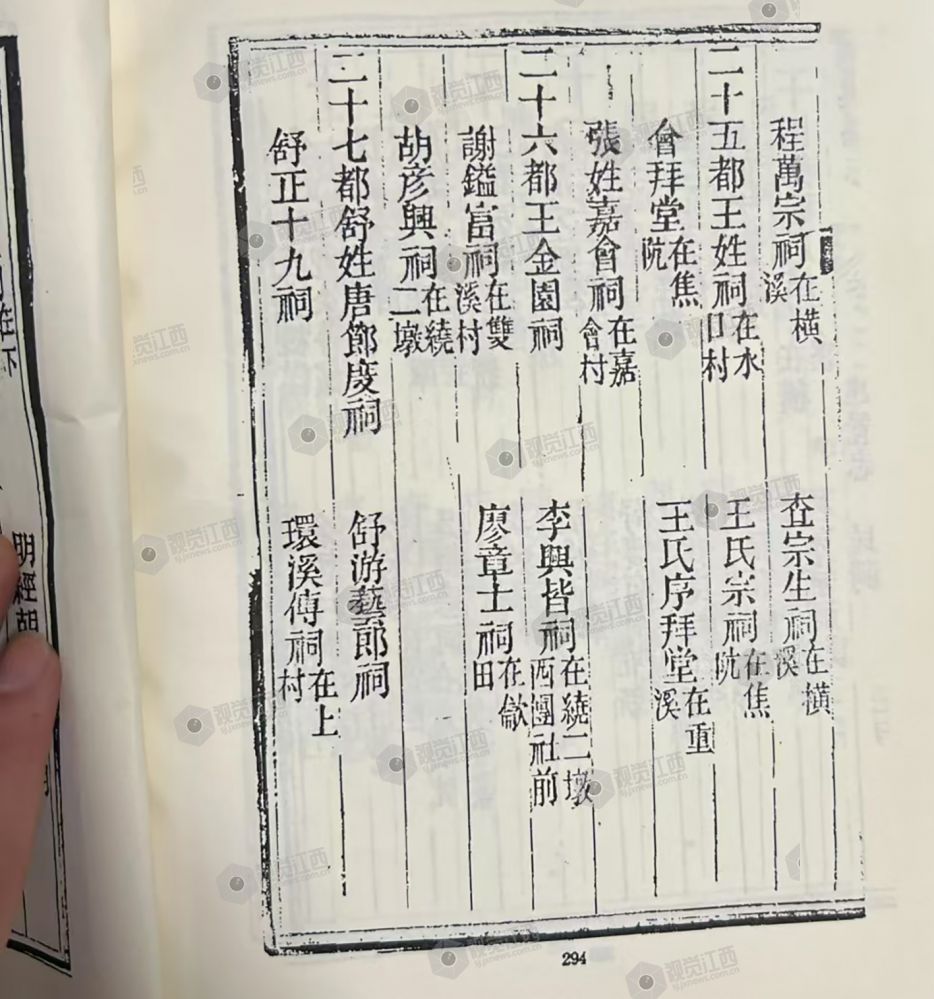 程萬宗祠在橫溪 查宗生祠在橫溪
二十五都王姓祠在水口村 王氏宗祠在焦阬
會拜堂在焦阬 王氏序拜堂在重溪
張姓嘉會祠在嘉會村
二十六都王金園祠 李興皆祠在繞二墩西團社前
謝鎰富祠在雙溪村 廖章士祠在歙田
胡彥興祠在繞二墩
二十七都舒姓唐節度祠 舒游藝郎祠
舒正十九祠 環溪傳祠在上村
294
明經胡
视觉江西
sj.jxnews.com.cn